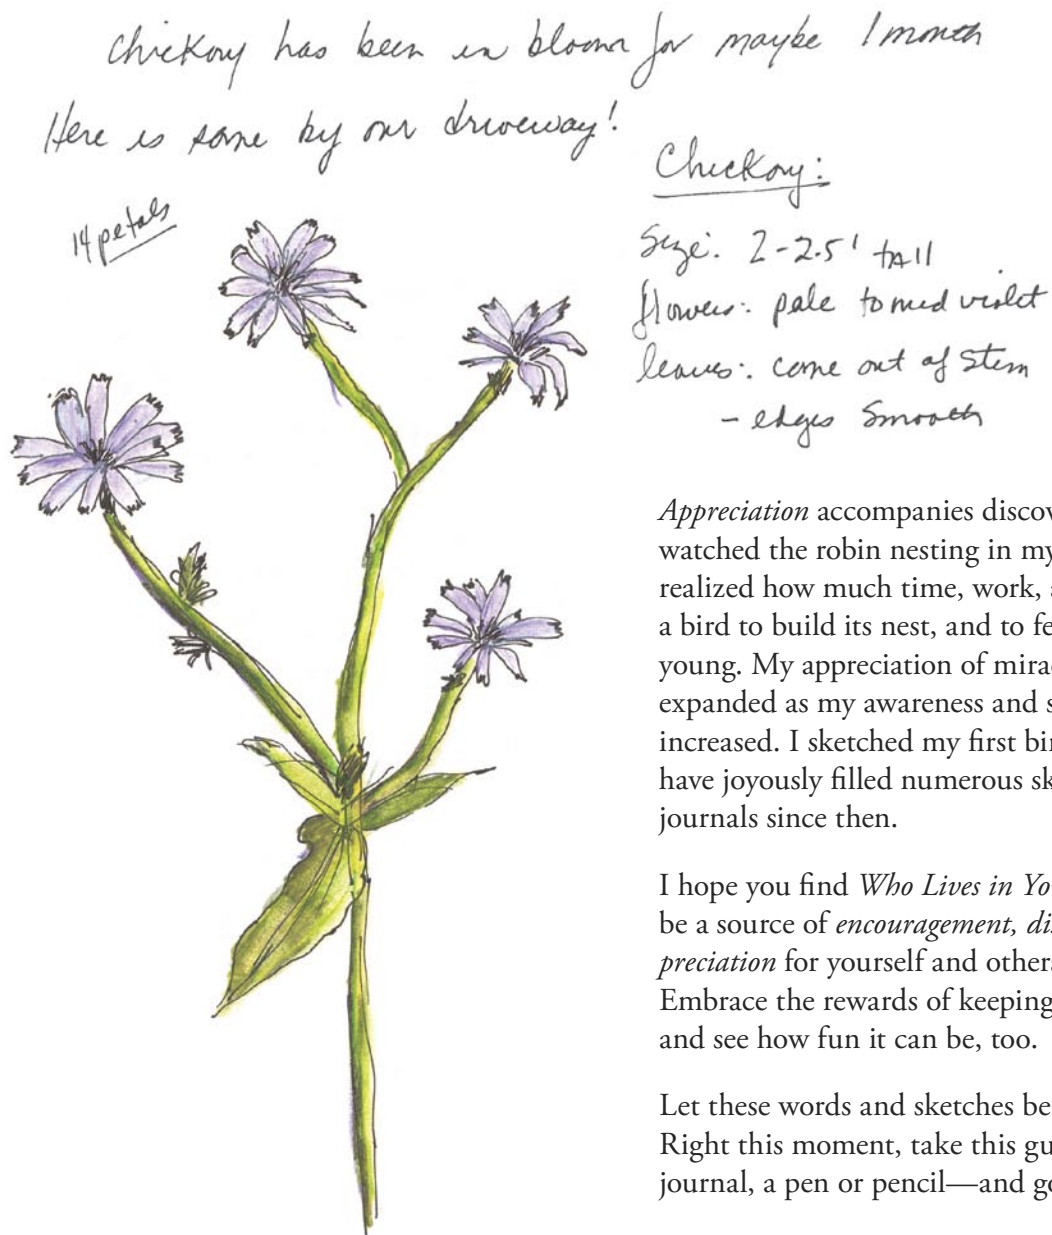 Chickory has been in bloom for maybe 1 month
Here is some by our driveway!
14 petals
Chickory:
Size: 2-2.5' tall
flowers: pale to med violet
leaves: come out of stem
- edges smooth
Appreciation accompanies discov
watched the robin nesting in my
realized how much time, work, a
a bird to build its nest, and to fe
young. My appreciation of mirac
expanded as my awareness and s
increased. I sketched my first bir
have joyously filled numerous sk
journals since then.
I hope you find Who Lives in Yo
be a source of encouragement, dis
preciation for yourself and others
Embrace the rewards of keeping
and see how fun it can be, too.
Let these words and sketches be
Right this moment, take this gu
journal, a pen or pencil—and go